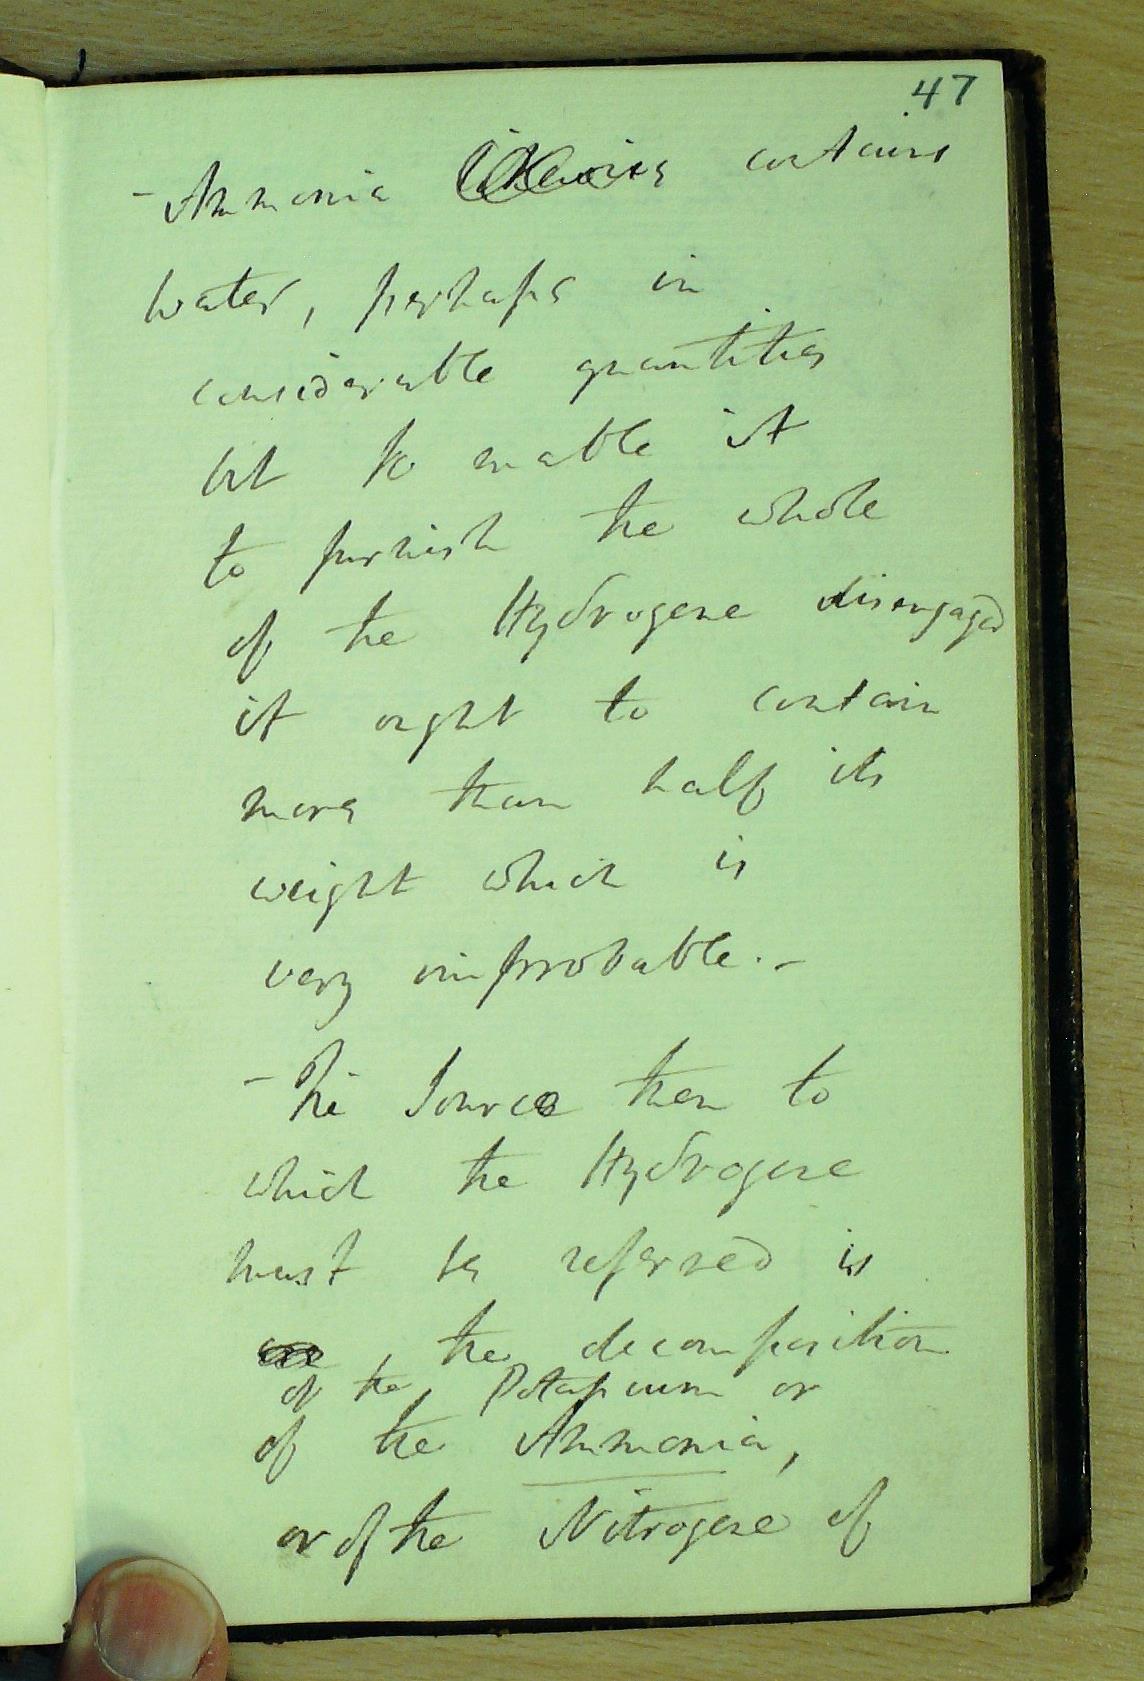 47
- Ammonia likewise contains
water, perhaps in
considerable quantities
but to enable it
to furnish the whole
of the Hydrogene disengaged
it ought to contain
more than half its
weight which is
very improbable. -
- The Source then to
which the Hydrogene
must be referred is
, the decomposition
of the Potassium or
of the Ammonia,
or of the Nitrogene of